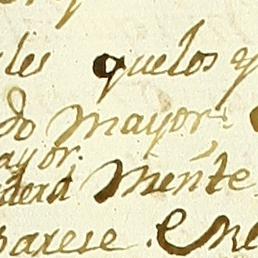 les quelos y
do mayor.
ayor.
dera Mente
parese.